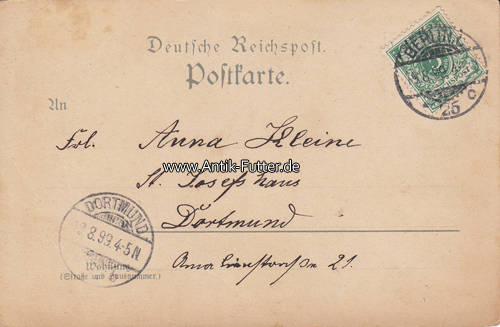 Deutsche Reichspost.
Postkarte.
BERLIN
25
c
An
Frl. Anna Kleine
www.Antik-Futter.de
St. Josefshaus
Dortmund
DORTMUND
8.99.4-5N
Wohnung
(Straße und Hausnummer.)
21.